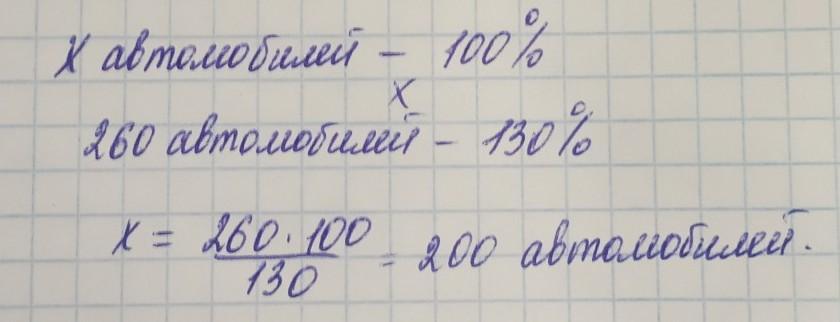 x автомобилей - 100%
x
260 автомобилей - 130%
x = 260·100/130 = 200 автомобилей.